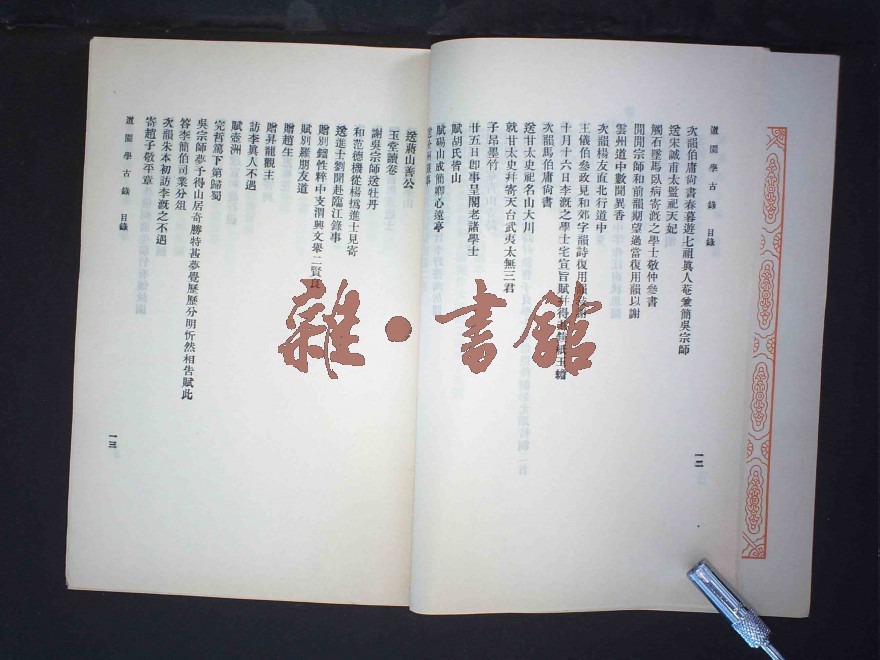 道園學古錄 目錄
次韻伯庸尚書春暮遊七祖眞人菴兼簡吳宗師
送宋誠甫太監祀天妃
觸石墜馬臥病寄漑之學士敬仲參書
閒閒宗師和前韻期望過當復用韻以謝
雲州道中數聞異香
次韻楊友直北行道中
王儀伯參政見和郊字韻詩復用韻
十月十六日李漑之學士宅宣旨賦
次韻馬伯庸尚書
送甘太史祀名山大川
就甘太史幷寄天台武夷太無三君
子昂墨竹
廿五日卽事呈閣老諸學士
賦胡氏皆山
賦碭山成簡卿心遠亭
一二
送蔣山善公
玉堂讀卷
謝吳宗師送牡丹
和范德機從楊
進士見寄
送進士劉聞赴臨江錄事
贈別
性粹中支渭興文舉二賢良
賦別羅朋友道
贈趙生
贈昇龍觀主
訪李眞人不遇
賦壺洲
完哲篤下第歸蜀
吳宗師夢予得山居奇勝特甚夢覺歷歷分明忻然相告賦此
答李簡伯司業分俎
次韻朱本初訪李漑之不遇
寄趙子敬平章
道園學古錄 目錄
一三
雜·書館